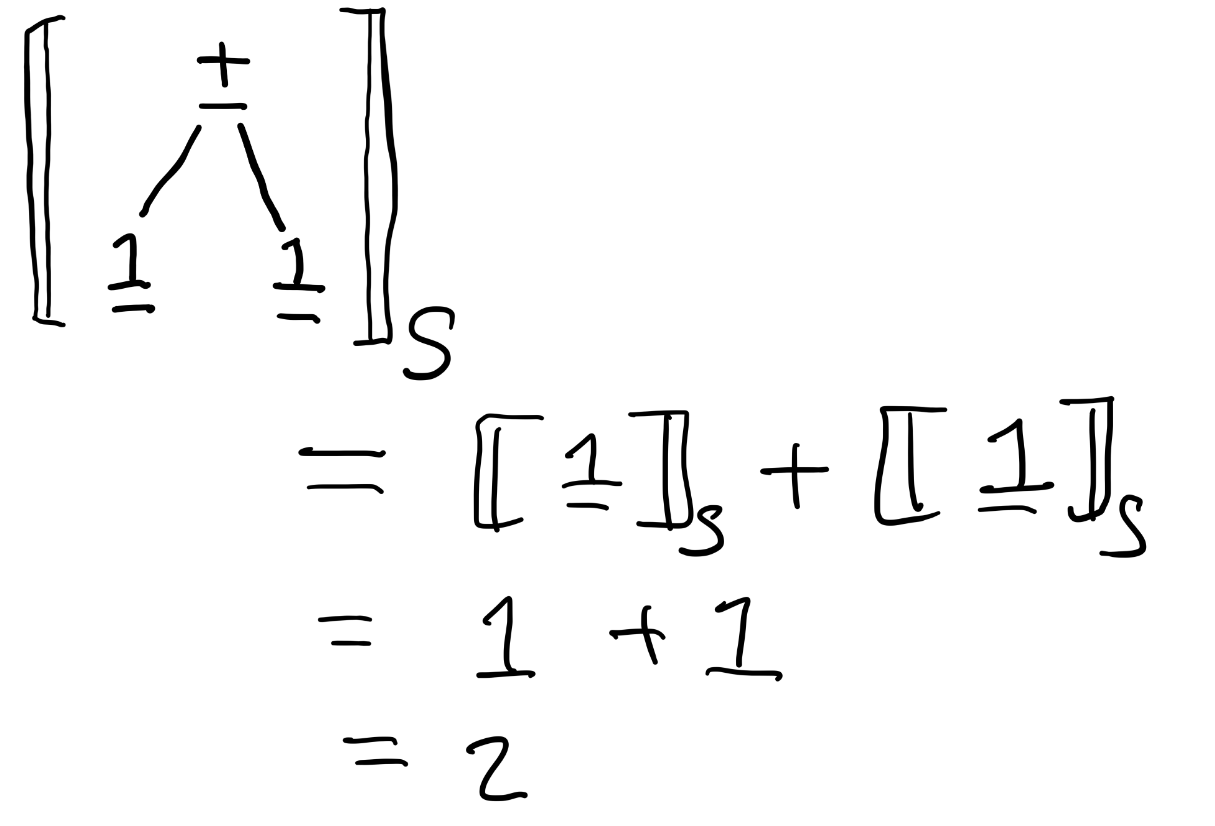 ⟦ +
1 1 ⟧S
= ⟦ 1 ⟧S + ⟦ 1 ⟧S
= 1 + 1
= 2